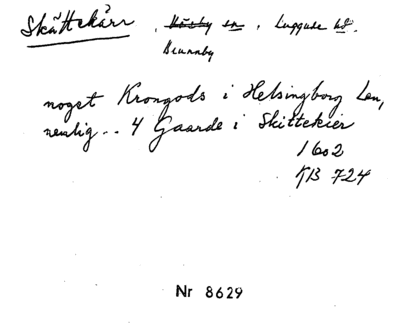 Skättekärr, Väsby sn, Luggude hd.
Brunnby
noget Krongods i Helsingborg Len,
nemlig .. 4 Gaarde i Skittekier
1602
KB 724
Nr 8629